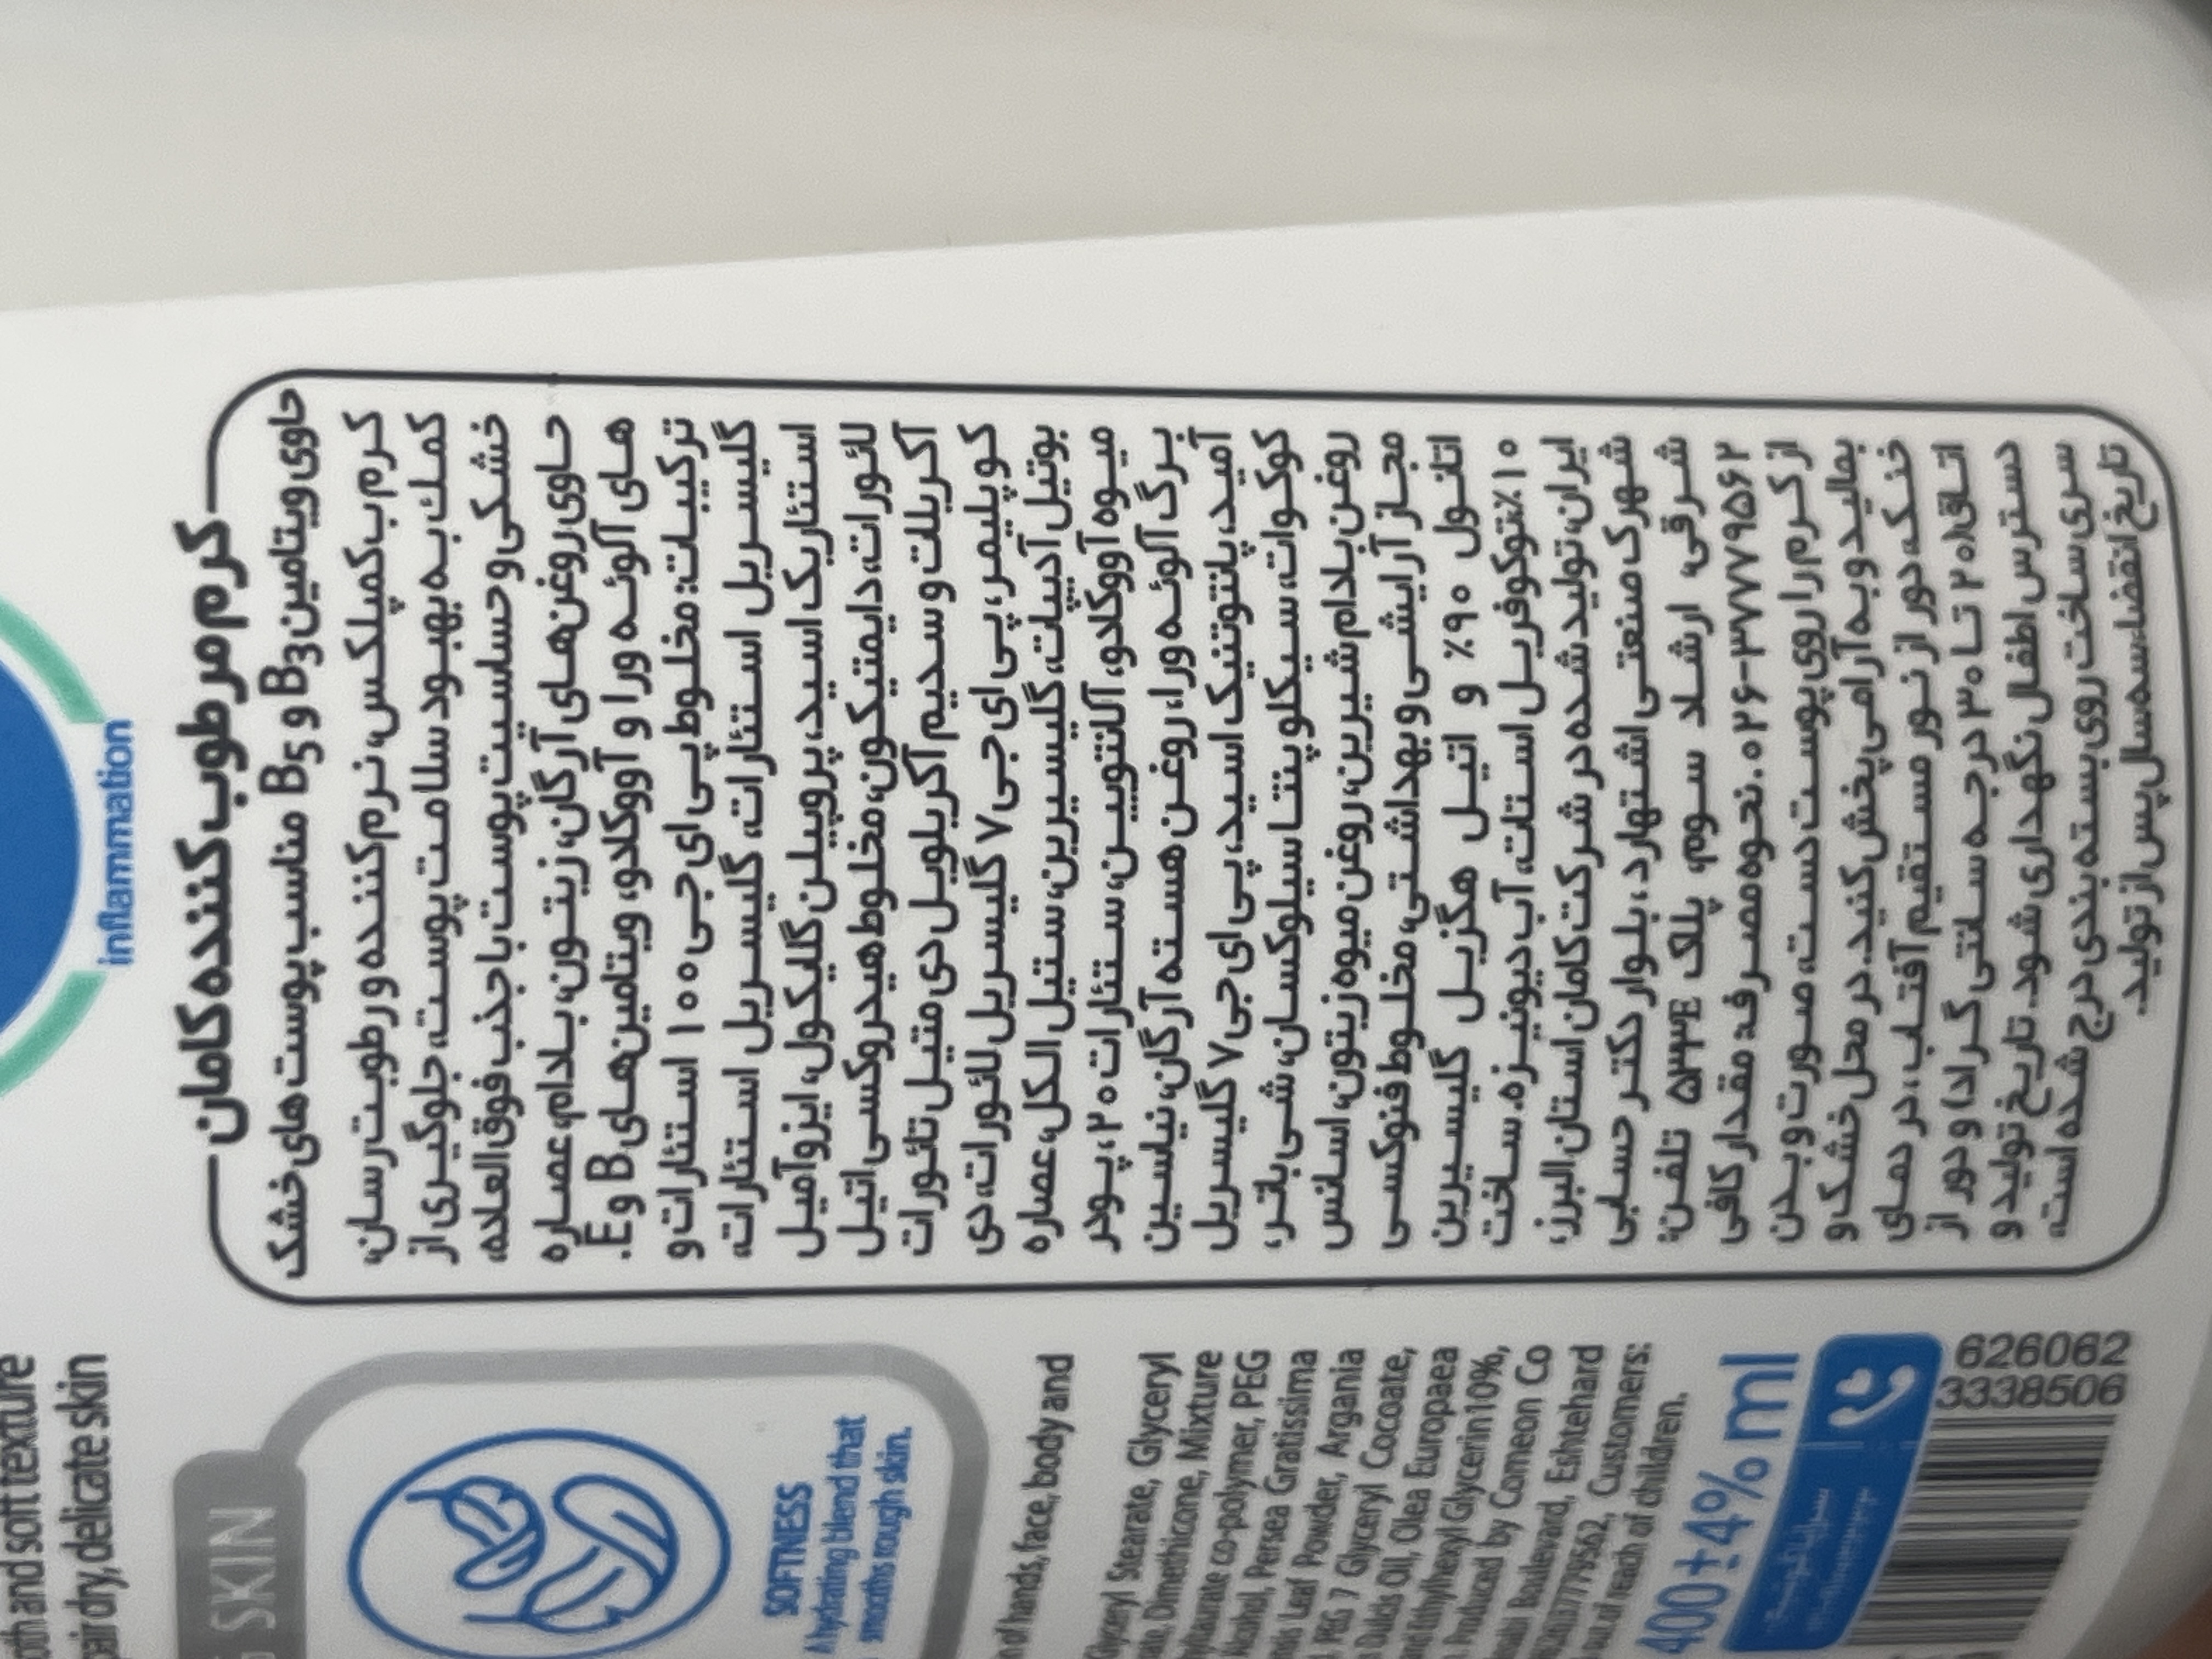 کرم مرطوب کننده کامان
حاوی ویتامین B3 و B5 مناسب پوست های خشک
کرم ب کمپلکس، نرم کننده و رطوبت رسان،
کمک به بهبود سلامت پوست، جلوگیری از
خشکی و حساسیت پوست با جذب فوق العاده،
حاوی روغن های آرگان، زیتون، بادام، عصاره
های آلوئه ورا و آووکادو، ویتامین های B و E.
ترکیبات: مخلوط پی ای جی ۱۰۰ استئارات و
گلیسریل استئارات، گلیسریل استئارات،
استئاریک اسید، پروپیلن گلیکول، ایزوآمیل
لائورات، دایمتیکون، مخلوط هیدروکسی اتیل
آکریلات و سدیم آکریلویل دی متیل تائورات
کوپلیمر، پی ای جی ۷ گلیسریل لائورات، دی
بوتیل آدیپات، گلیسیرین، ستیل الکل، عصاره
میوه آووکادو، آلانتویین، ستئارات ۲۰، پودر
برگ آلوئه ورا، روغن هسته آرگان، نیاسین
آمید، پانتوتنیک اسید، پی ای جی ۷ گلیسریل
کوکوات، سیکلوپنتاسیلوکسان، شی باتر،
روغن بادام شیرین، روغن میوه زیتون، اسانس
مجاز آرایشی و بهداشتی، مخلوط فنوکسی
اتانول ۹۰٪ و اتیل هگزیل گلیسیرین
۱۰٪، توکوفریل استات، آب دیونیزه. ساخت
ایران، تولید شده در شرکت کامان استان البرز،
شهرک صنعتی اشتهارد، بلوار دکتر حسابی
شرقی، ارشاد سوم، پلاک تلفن:
۰۲۶-۳۷۷۷۹۵۶۲. نحوه مصرف: مقدار کافی
از کرم را روی پوست دست، صورت و بدن
بمالید و به آرامی پخش کنید. در محل خشک و
خنک، دور از نور مستقیم آفتاب، در دمای
اتاق (۲۰ تا ۳۰ درجه سانتی گراد) و دور از
دسترس اطفال نگهداری شود. تاریخ تولید و
سری ساخت روی بسته بندی درج شده است.
تاریخ انقضا: سه سال پس از تولید.
inflammation
oth and soft texture
pair dry, delicate skin
SKIN
SOFTNESS
A hydrating blend that
smooths rough skin.
of hands, face, body and
Glyceryl Stearate, Glyceryl
Dimethicone, Mixture
co-polymer, PEG
Alcohol, Persea Gratissima
Leaf Powder, Argania
PEG 7 Glyceryl Cocoate,
Dulcis Oil, Olea Europaea
Ethylhexyl Glycerin 10%,
Produced by Comeon Co
Boulevard, Eshtehard
Customers:
out of reach of children.
400±4% ml
626062
3338506